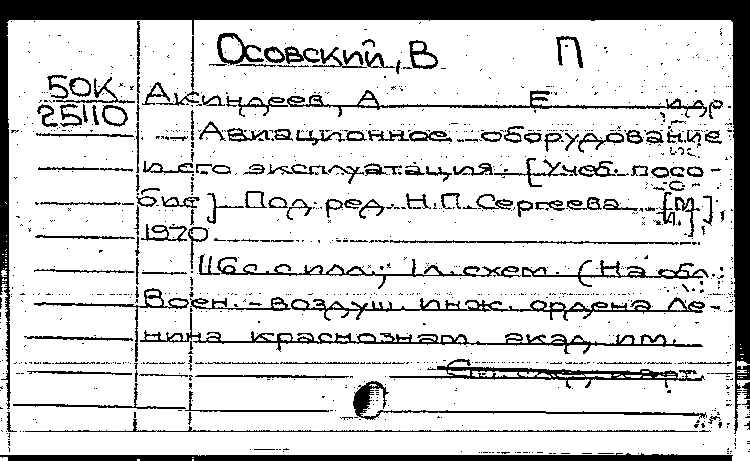 Осовский, В П
50К
25110
Акиндеев, А Е и др
Авиационное оборудование
и его эксплуатация. [Учеб. посо-
бие] Под ред. Н.П. Сергеева [М.],
1970
116с. с илл.; 1л. схем. (На обл.:
Воен.-воздуш. инж. ордена Ле-
нина краснознам. акад. им.
См. след. карт